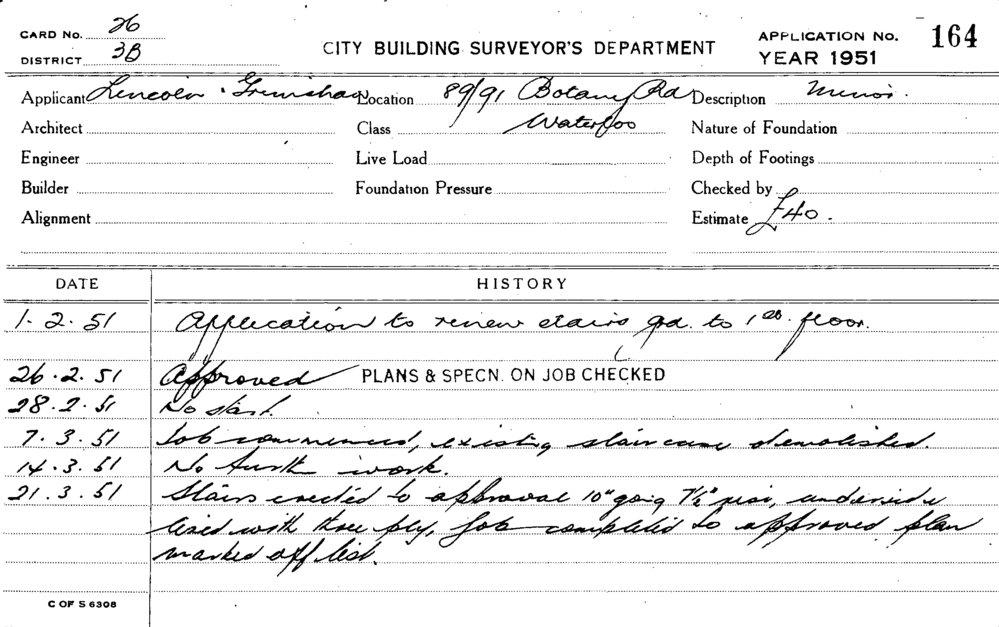 CARD No. 26
DISTRICT 3B
CITY BUILDING SURVEYOR'S DEPARTMENT
APPLICATION No. 164
YEAR 1951
Applicant Lincoln Grimshaw Location 89/91 Botany Rd Description Minor.
Waterloo
Architect Class Nature of Foundation
Engineer Live Load Depth of Footings
Builder Foundation Pressure Checked by
Alignment Estimate £40.
DATE HISTORY
1.2.51 Application to renew stairs gd. to 1st. floor.
26.2.51 Approved PLANS & SPECN. ON JOB CHECKED
28.2.51 No start.
7.3.51 Job commenced, existing staircase demolished.
14.3.51 No furth work.
21.3.51 Stairs erected to approval 10" going 7½" rise, underside
lined with three ply, Job completed to approved plan
marked off list.
C OF S 6308